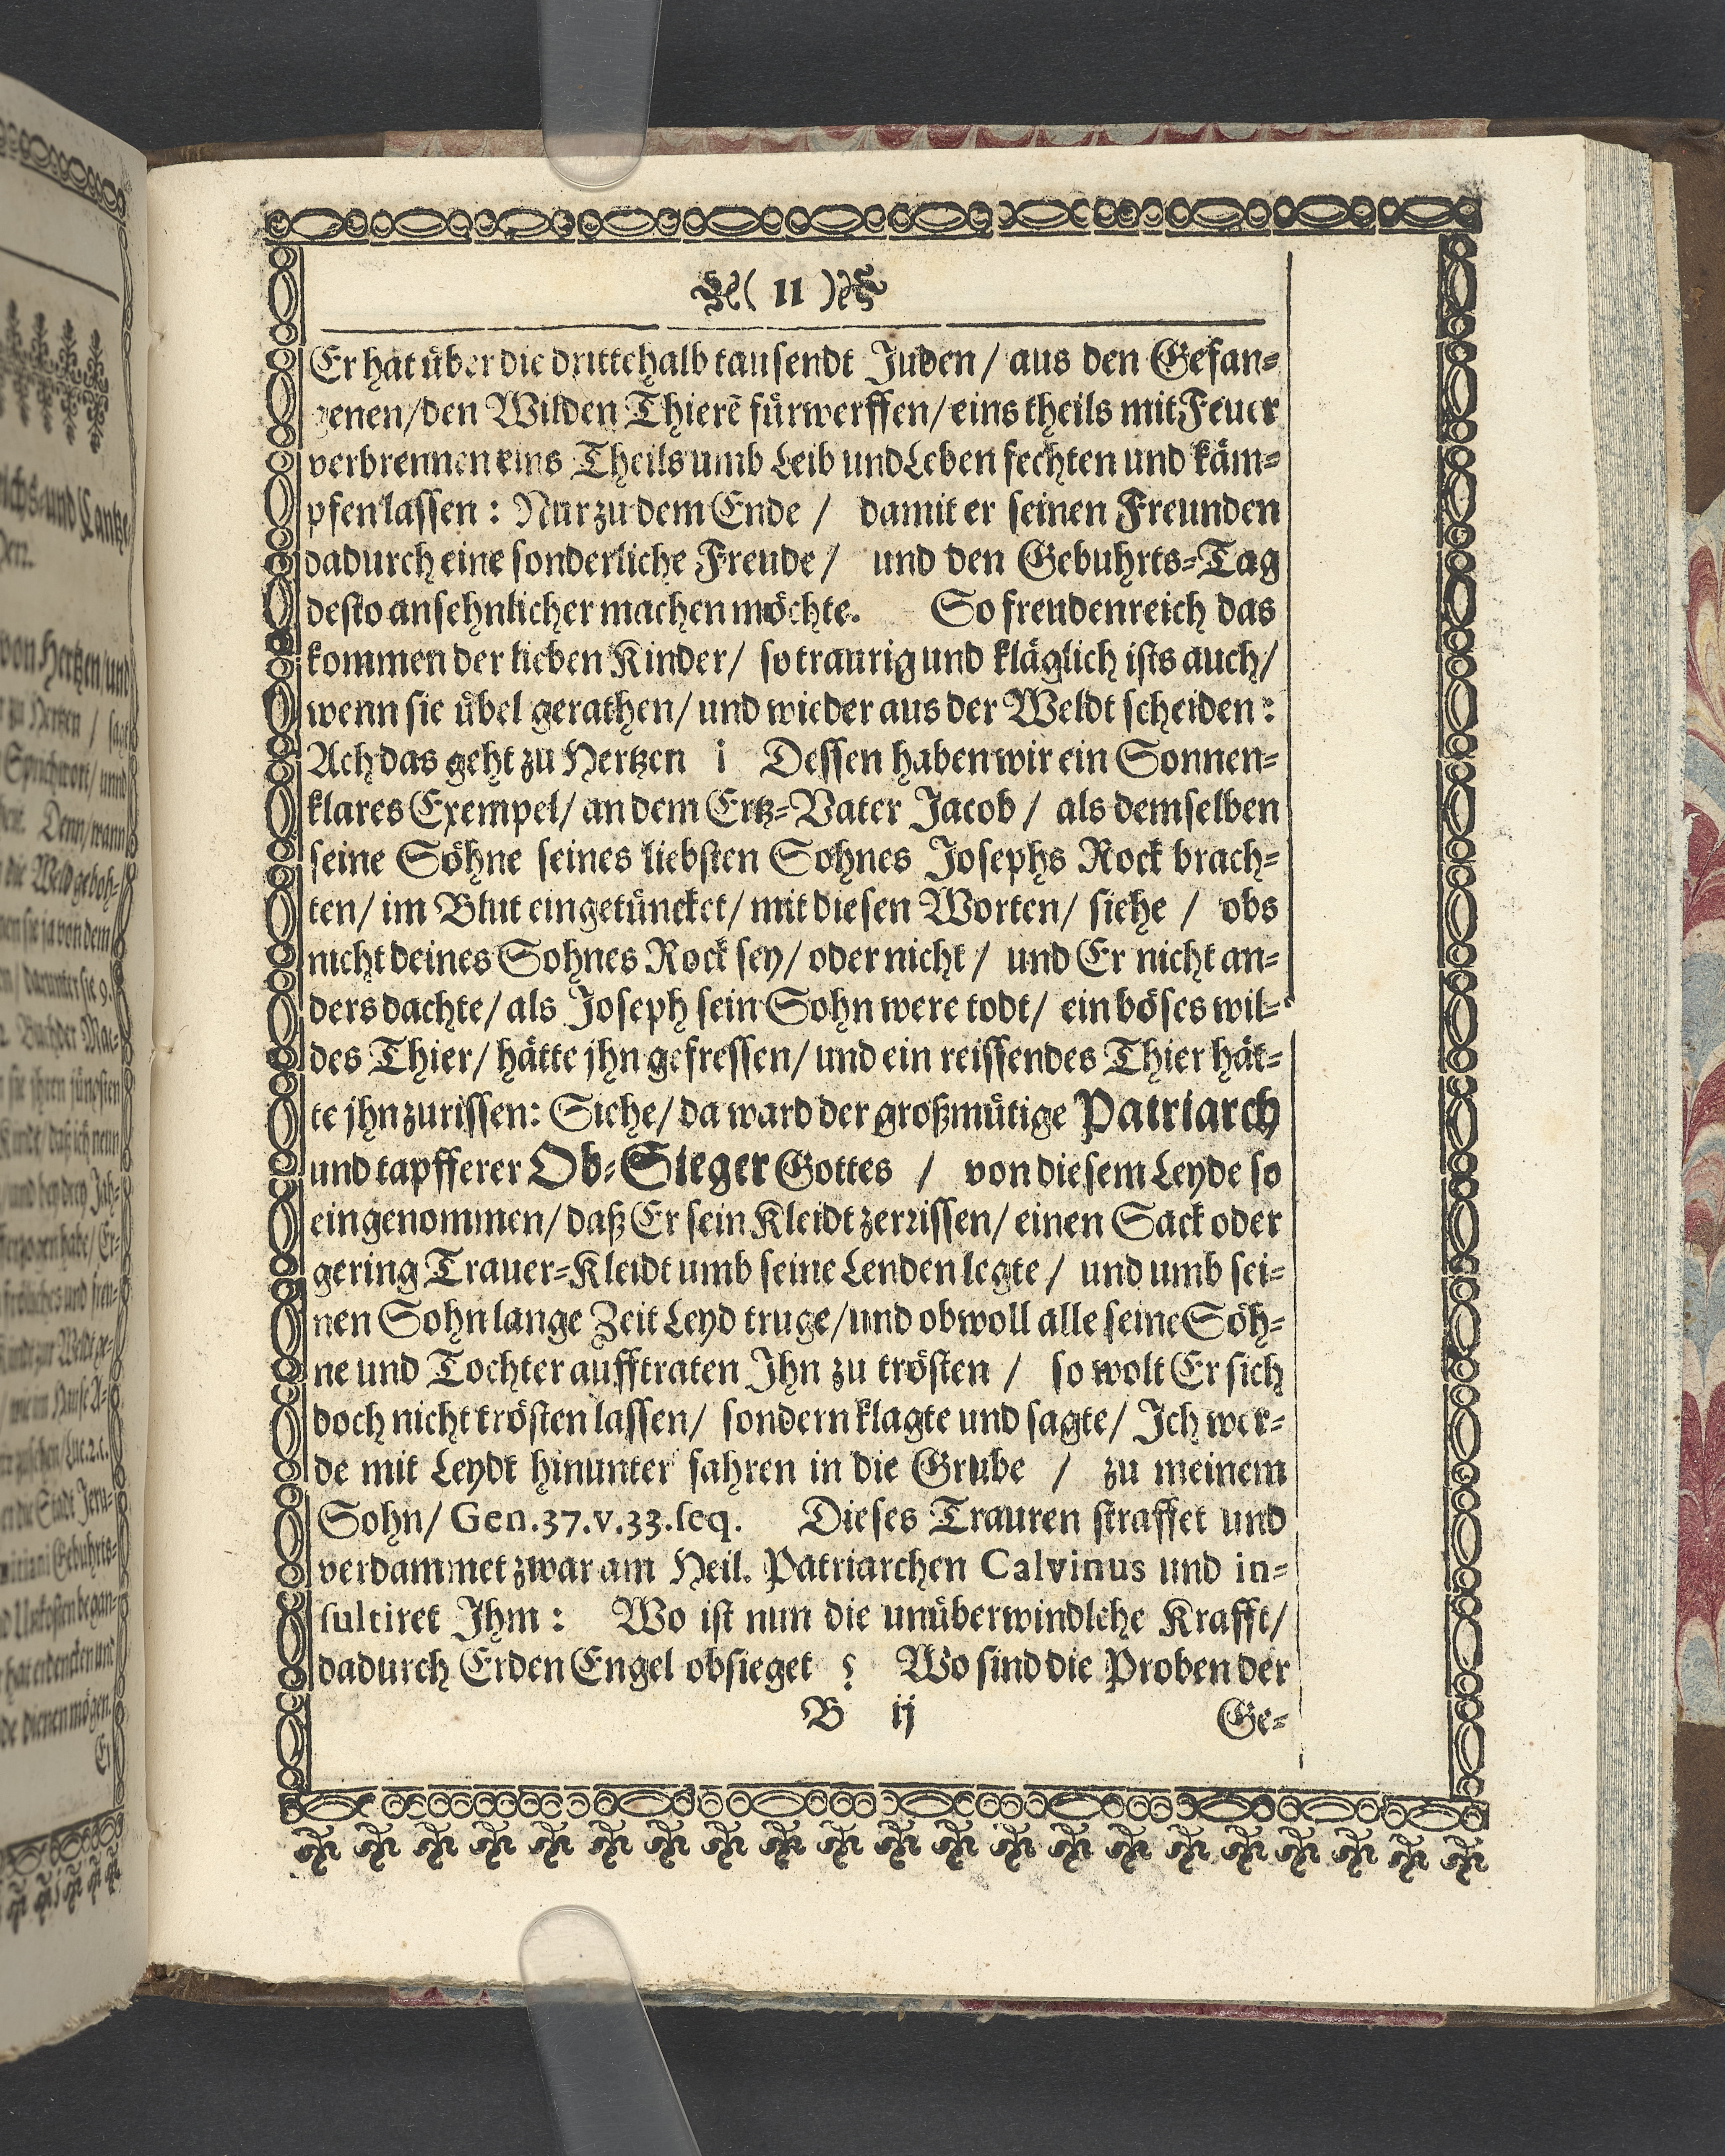 ( 11 )
Er hat über die drittehalb tausendt Juden / aus den Gefan-
genen/den Wilden Thierē fürwerffen/ eins theils mit Feuer
verbrennen eins Theils umb Leib und Leben fechten und käm-
pfen lassen : Nur zu dem Ende / damit er seinen Freunden
dadurch eine sonderliche Freude / und den Gebuhrts-Tag
desto ansehnlicher machen möchte. So freudenreich das
kommen der lieben Kinder/ so traurig und kläglich ists auch/
wenn sie übel gerathen/ und wieder aus der Weldt scheiden :
Ach das geht zu Hertzen ! Dessen haben wir ein Sonnen-
klares Exempel/ an dem Ertz-Vater Jacob / als demselben
seine Söhne seines liebsten Sohnes Josephs Rock brach-
ten/ im Blut eingetüncket/ mit diesen Worten/ siehe / obs
nicht deines Sohnes Rock sey/ oder nicht / und Er nicht an-
ders dachte/ als Joseph sein Sohn were todt/ ein böses wil-
des Thier/ hätte jhn gefressen/ und ein reissendes Thier hät-
te jhn zurissen: Siehe/ da ward der großmütige Patriarch
und tapfferer Ob-Sieger Gottes / von diesem Leyde so
eingenommen/ daß Er sein Kleidt zerrissen/ einen Sack oder
gering Trauer-Kleidt umb seine Lenden legte / und umb sei-
nen Sohn lange Zeit Leyd truge/und obwoll alle seine Söh-
ne und Tochter aufftraten Ihn zu trösten / so wolt Er sich
doch nicht trösten lassen/ sondern klagte und sagte/ Ich wer-
de mit Leydt hinunter fahren in die Grube / zu meinem
Sohn/ Gen.37.v.33.seq. Dieses Trauren straffet und
verdammet zwar am Heil. Patriarchen Calvinus und in-
sultiret Ihm : Wo ist nun die unüberwindlche Krafft/
dadurch Erden Engel obsieget ? Wo sind die Proben der
B ij Ge-